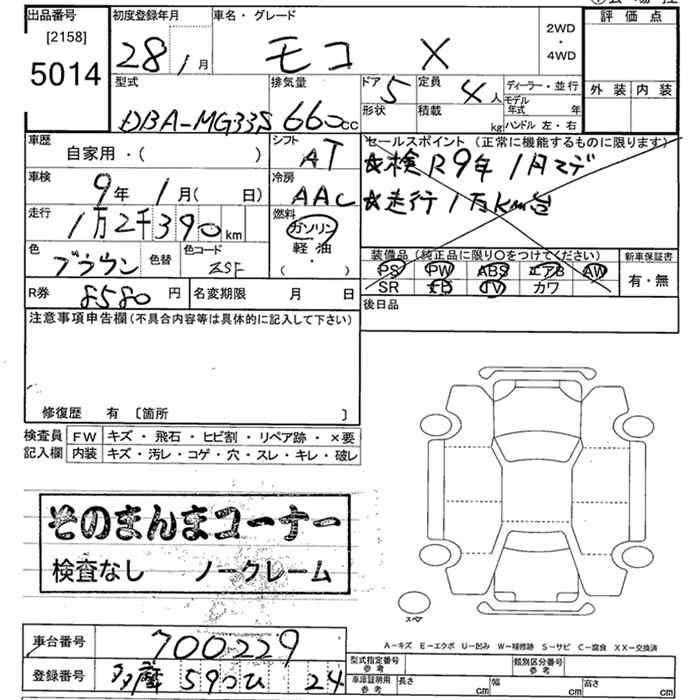 出品番号 初度登録年月 車名・グレード 評価点
[2158]
5014
28 1月 モコ X 2WD
・
4WD
型式 排気量 ドア 5 定員 4人 ディーラー・並行 外装 内装
DBA-MG33S 660cc 形状 積載 kg モデル年式 年
ハンドル 左・右
車歴 自家用・( ) シフト AT セールスポイント (正常に機能するものに限ります)
車検 9年 1月( 日) 冷房 AAC ☆検R9年1月マデ
走行 1万2千390km 燃料 ガソリン ☆走行1万km台
軽油
( ・ )
色 ブラウン 色替 色コード 装備品 (純正品に限り○をつけてください) 新車保証書
PS PW ABS エアB AW 有・無
SR TV カワ
R券 8580円 名変期限 月 日 後日品
注意事項申告欄(不具合内容等は具体的に記入して下さい)
修復歴 有 〔箇所 〕
検査員 FW キズ・飛石・ヒビ割・リペア跡・×要
記入欄 内装 キズ・汚レ・コゲ・穴・スレ・キレ・破レ
そのまんまコーナー
検査なし ノークレーム
スペア
A-キズ E-エクボ U-凹み W-補修跡 S-サビ C-腐食 XX-交換済
車台番号 700229 型式指定番号 参考 類別区分番号 参考
登録番号 24 車庫証明用 参考 長さ cm 幅 cm 高さ cm